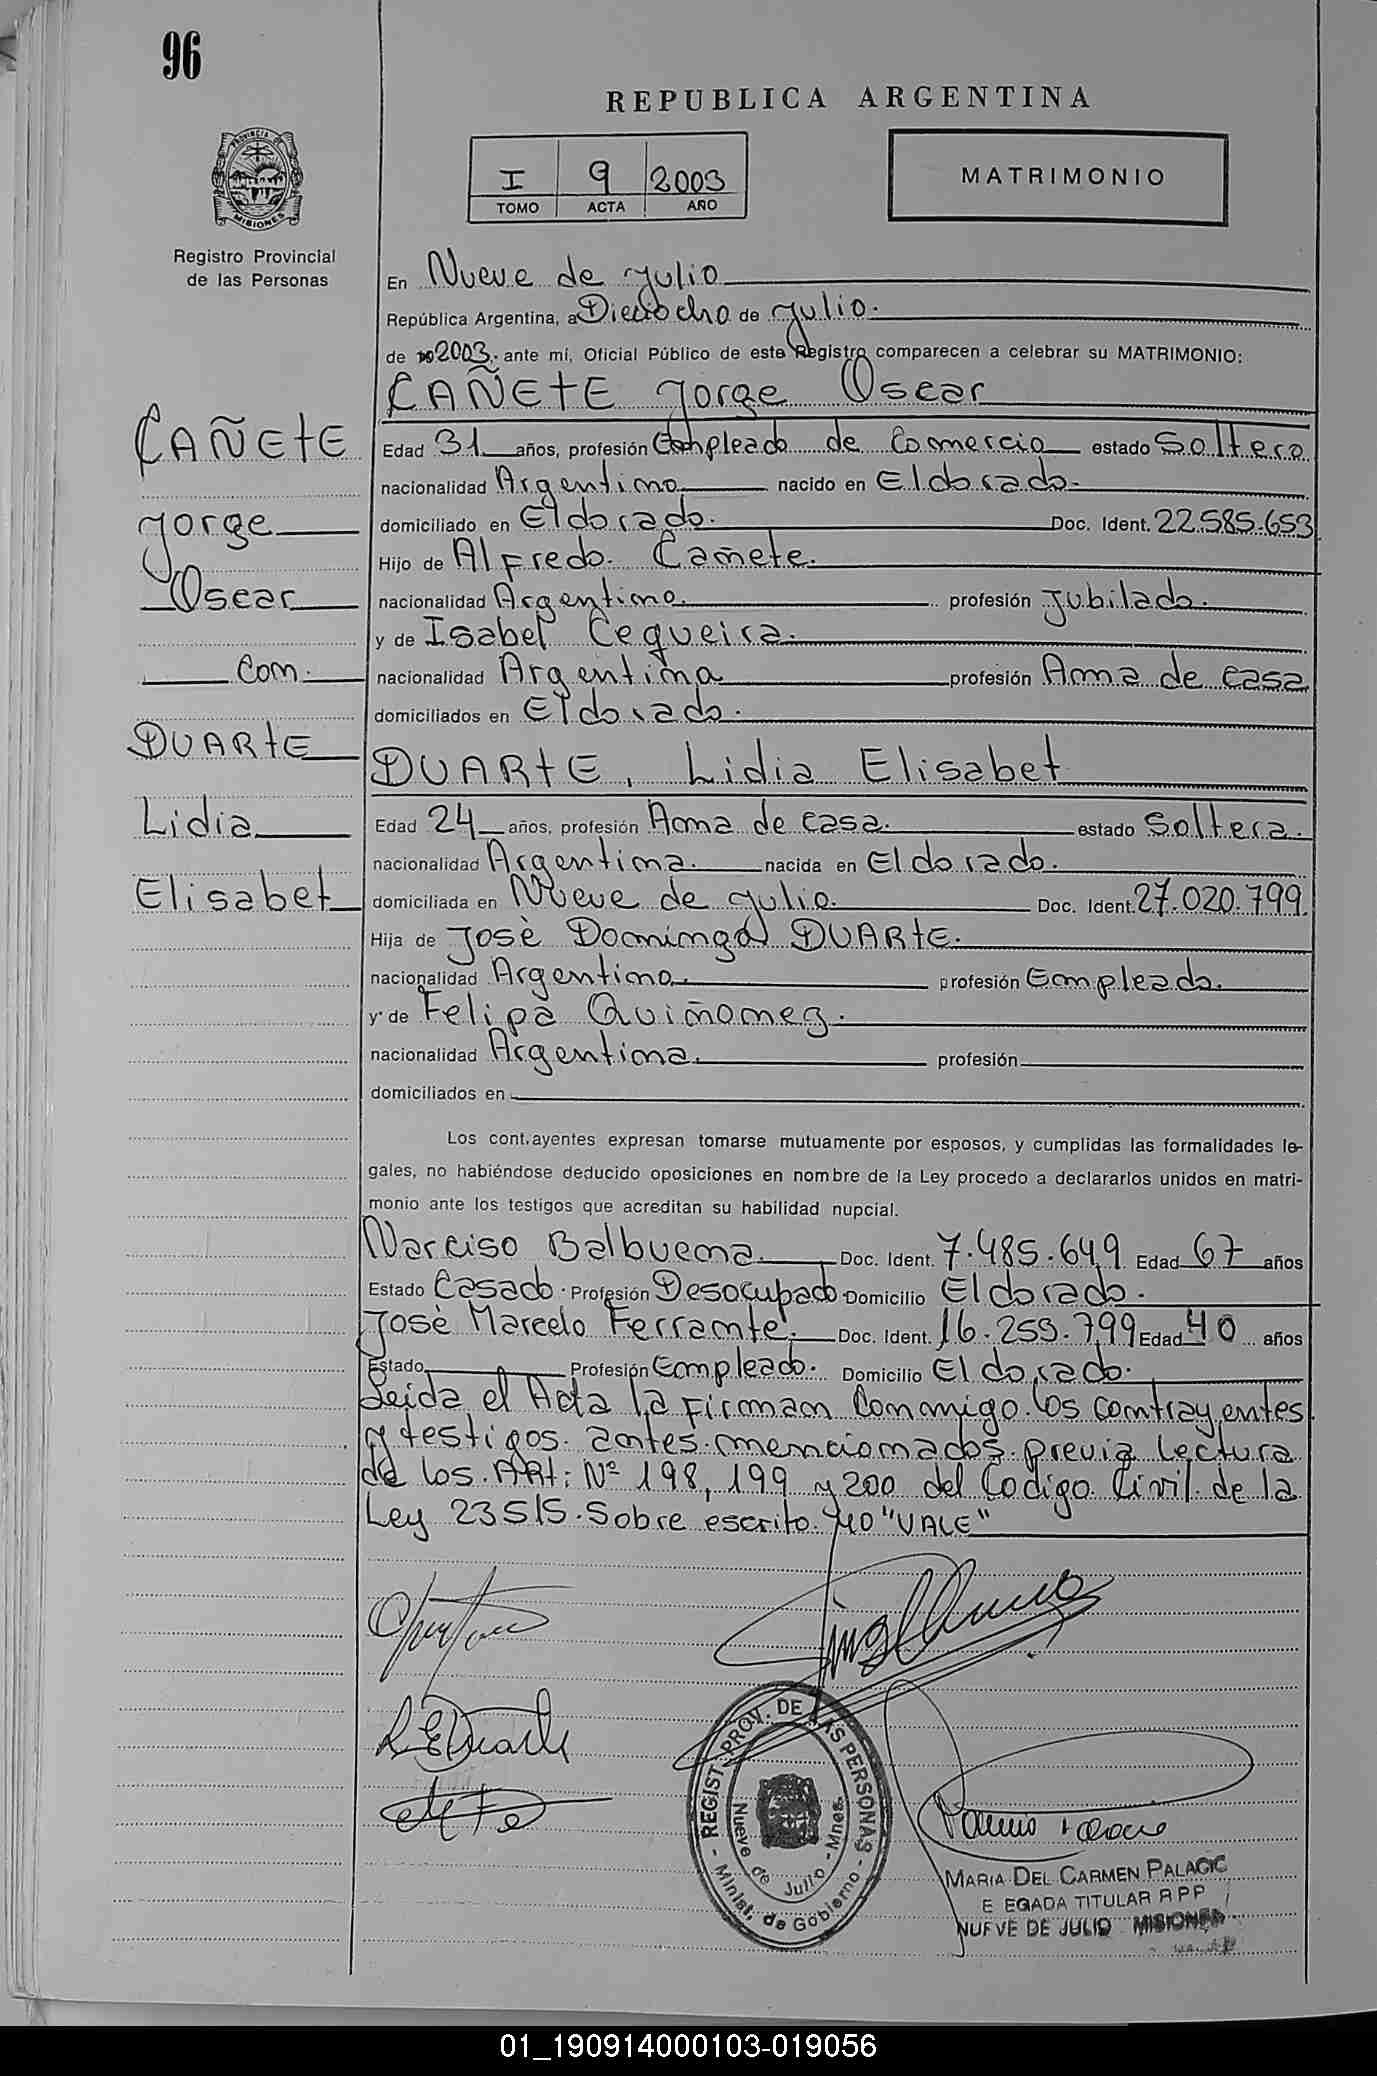 96
REPUBLICA ARGENTINA
I 9 2003
TOMO ACTA AÑO
MATRIMONIO
PROVINCIA DE
MISIONES
Registro Provincial
de las Personas
En Nueve de Julio
República Argentina, a Dieciocho de Julio.
de 2003. ante mí, Oficial Público de este Registro comparecen a celebrar su MATRIMONIO:
CAÑETE Jorge Oscar
CAÑETE
Jorge
Oscar
Con.
DUARTE
Lidia
Elisabet
Edad 31 años, profesión Empleado de Comercio estado Soltero
nacionalidad Argentino nacido en Eldorado.
domiciliado en Eldorado. Doc. Ident. 22.585.653
Hijo de Alfredo. Cañete.
nacionalidad Argentino. profesión Jubilado.
y de Isabel Cequeira.
nacionalidad Argentina profesión Ama de casa
domiciliados en Eldorado.
DUARTE, Lidia Elisabet
Edad 24 años, profesión Ama de casa. estado Soltera.
nacionalidad Argentina. nacida en Eldorado.
domiciliada en Nueve de Julio. Doc. Ident. 27.020.799
Hija de Josè Domingo DUARTE.
nacionalidad Argentino. profesión Empleado.
y de Felipa Quiñonez.
nacionalidad Argentina. profesión
domiciliados en
Los cont.ayentes expresan tomarse mutuamente por esposos, y cumplidas las formalidades le-
gales, no habiéndose deducido oposiciones en nombre de la Ley procedo a declararlos unidos en matri-
monio ante los testigos que acreditan su habilidad nupcial.
Narciso Balbuena. Doc. Ident. 7.485.649 Edad 67 años
Estado Casado. Profesión Desocupado Domicilio Eldorado.
Josè Marcelo Ferrante. Doc. Ident. 16.259.799 Edad 40 años
Estado Profesión Empleado. Domicilio Eldorado.
Leida el Acta la Firman Conmigo los contrayentes
y testigos. antes. mencionados. previa Lectura
de los. ARt: Nº 198, 199 y 200 del Codigo Civil. de la
Ley 23515. Sobre escrito. 40 "VALE"
L E Duarte
REGIST. PROV. DE LAS PERSONAS
Nueve de Julio - Mnes.
- Minist. de Gobierno -
MARIA DEL CARMEN PALACIO
E EGADA TITULAR R P P
NUEVE DE JULIO MISIONES
01_190914000103-019056